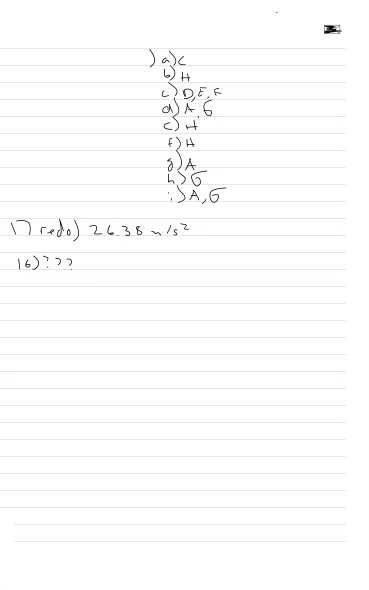 ) a) C
b) H
c) D, E, F
d) A, G
e) H
f) H
g) A
h) G
i) A, G
17 redo) 26.38 m/s²
16) ???